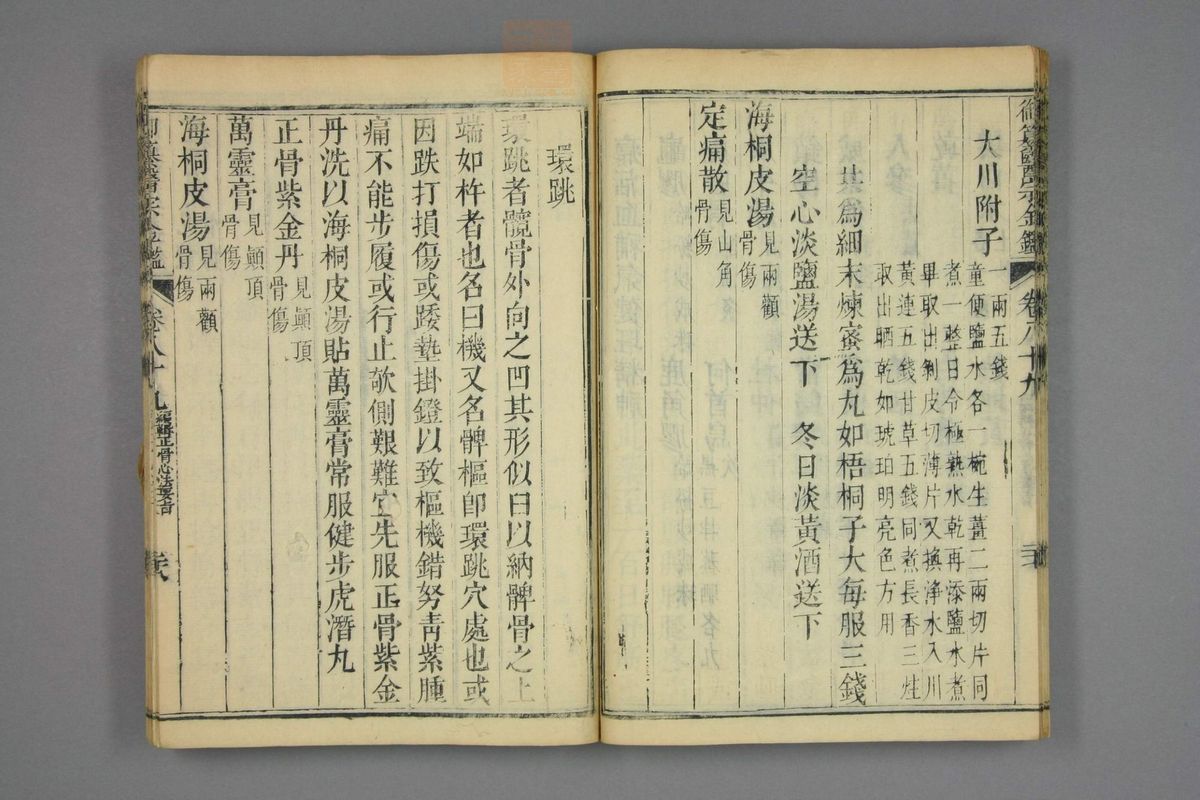 御纂醫宗金鑑 卷八十九
大川附子
一兩五錢
童便鹽水各一椀生薑二兩切片同
煮一整日令極熟水乾再添鹽水煮
畢取出剝皮切薄片又換淨水入川
黃連五錢甘草五錢同煮長香三炷
取出晒乾如琥珀明亮色方用
共為細末煉蜜為丸如梧桐子大每服三錢
空心淡鹽湯送下 冬日淡黃酒送下
海桐皮湯 見兩顴
骨傷
定痛散 見山角
骨傷
環跳
環跳者髖骨外向之凹其形似臼以納髀骨之上
端如杵者也名曰機又名髀樞卽環跳穴處也或
因跌打損傷或踒墊掛鐙以致樞機錯努青紫腫
痛不能步履或行止欹側艱難宜先服正骨紫金
丹洗以海桐皮湯貼萬靈膏常服健步虎潛丸
正骨紫金丹 見顚頂
骨傷
萬靈膏 見顚頂
骨傷
海桐皮湯 見兩顴
骨傷
御纂醫宗金鑑 卷八十九 編輯正骨心法要旨